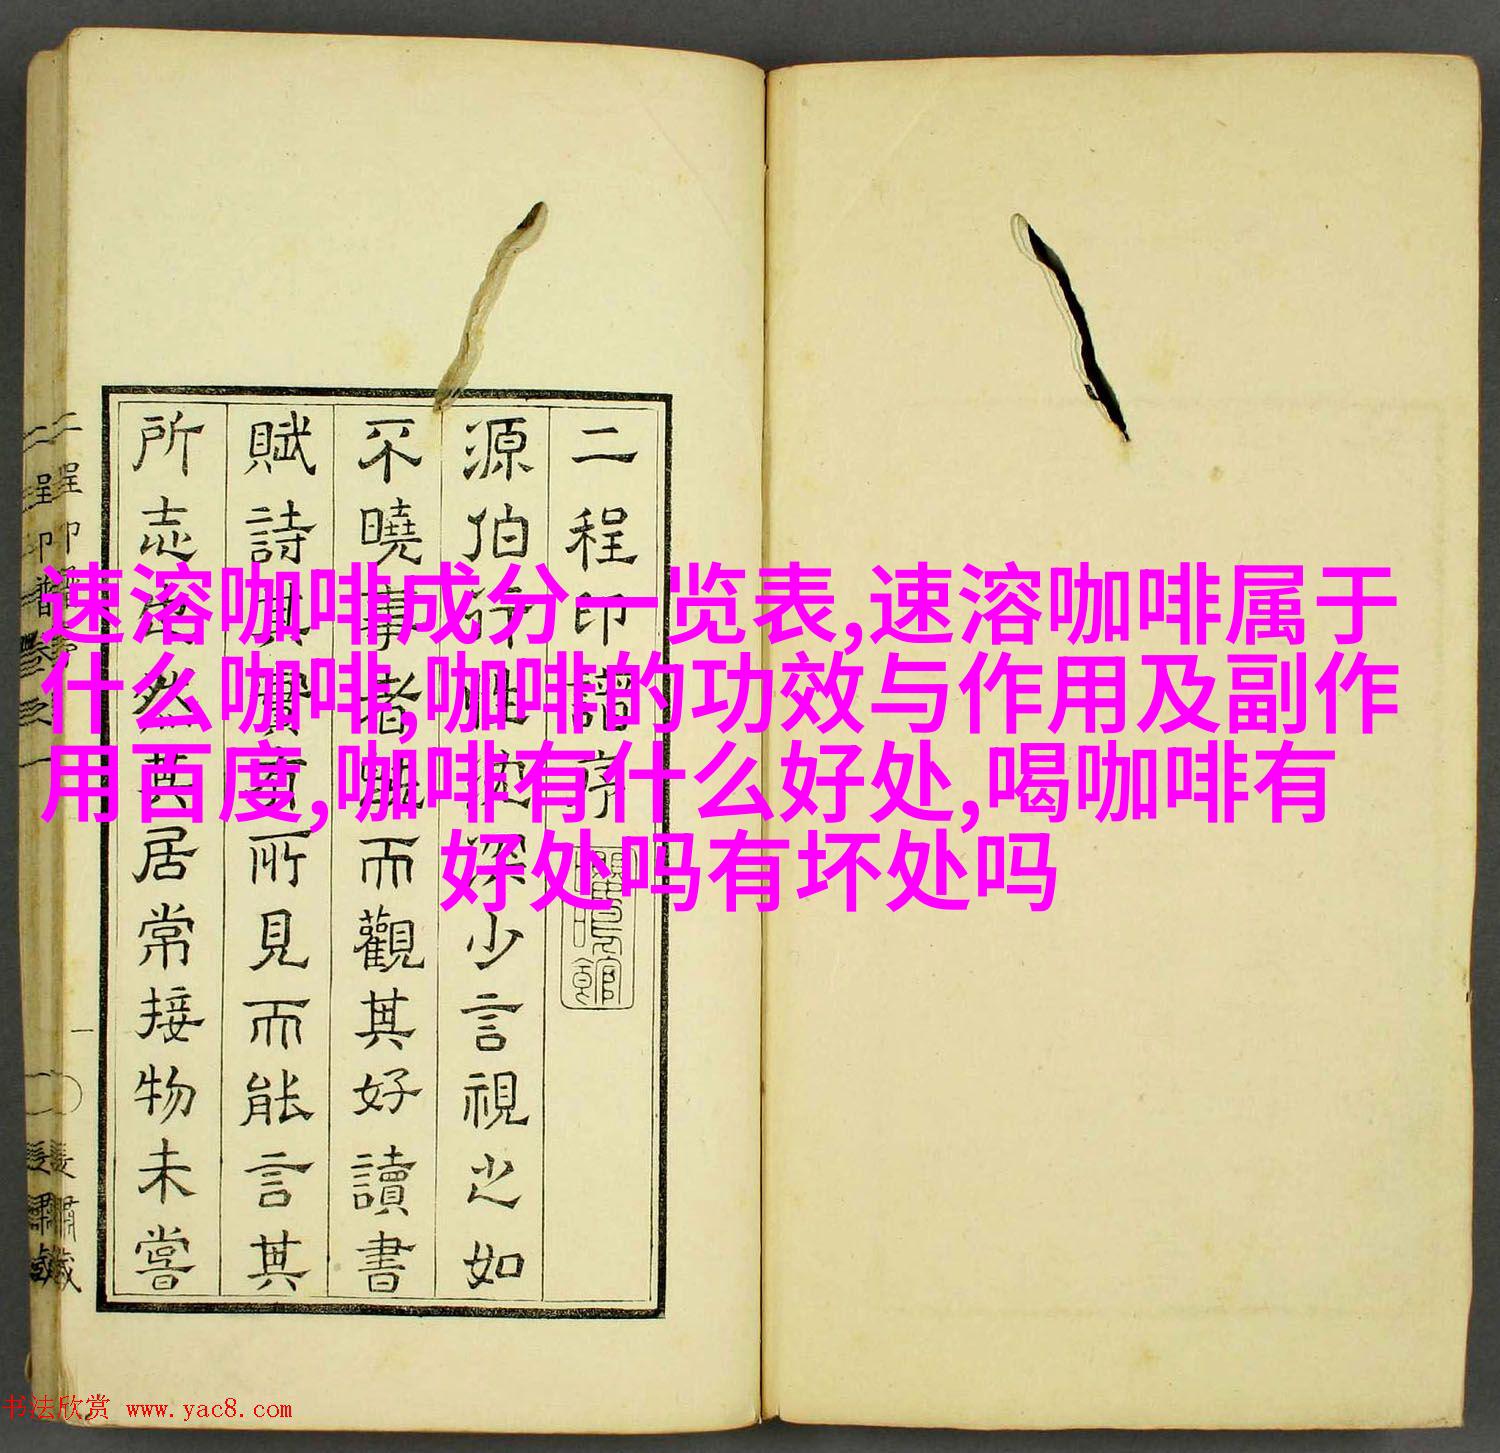 速溶咖啡成分一览表,速溶咖啡属于
什么咖啡,咖啡的功效与作用及副作
用百度,咖啡有什么好处,喝咖啡有
好处吗有坏处吗
二程印譜序
源伯行性深少言視之如
不曉事者而觀其好讀書
賦詩其所見而能言其
所志然其居常接物未嘗
書法欣赏 www.yac8.com